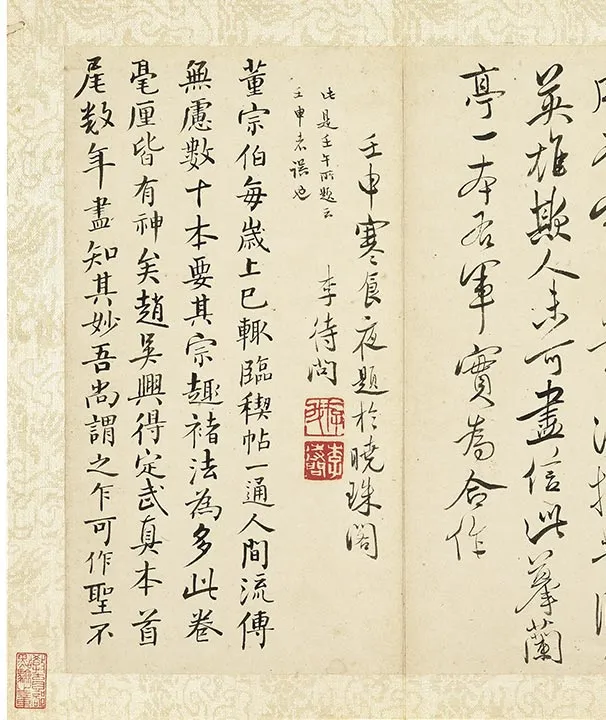 英雄欺人未可盡信此摹蘭
亭一本右軍實為合作
壬申寒食夜題於曉珠閣
李待問
此是壬午所題云
壬申者誤也
董宗伯每歲上巳輒臨稧帖一通人間流傳
無慮數十本要其宗趣褚法為多此卷
毫厘皆有神矣趙吳興得定武真本首
尾数年盡知其妙吾尚謂之乍可作聖不